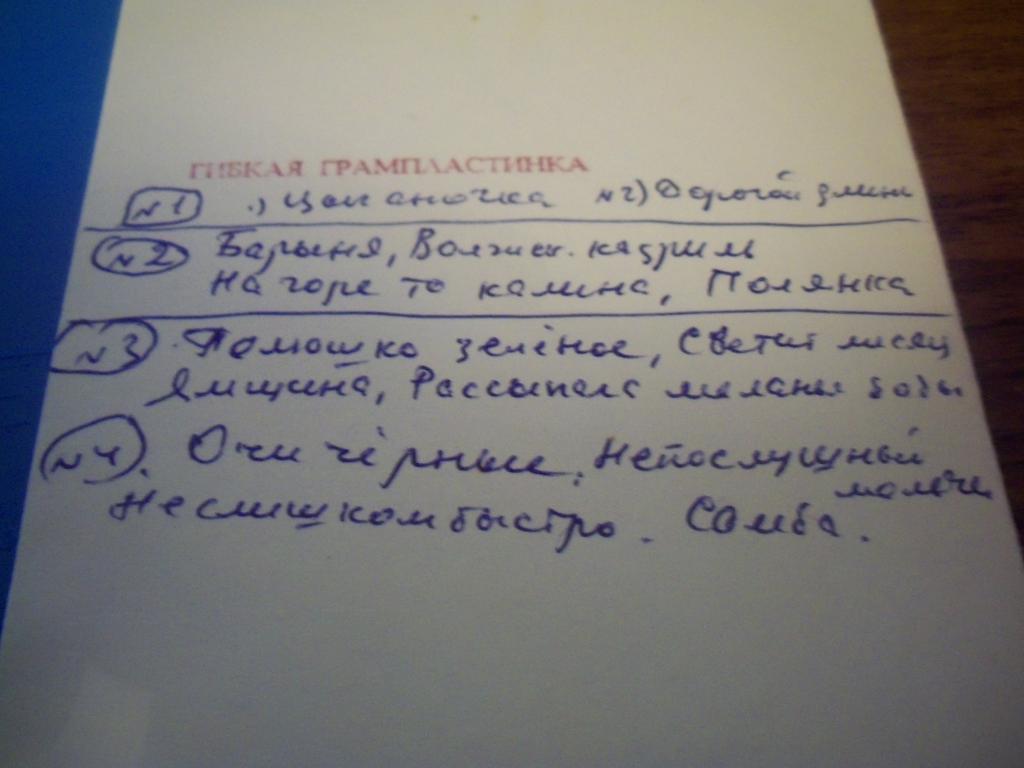 ГИБКАЯ ГРАМПЛАСТИНКА
№1 .) Цыганочка №2) Дорогой длин
№2 Барыня, Волжск. кадриль
На горе то калина, Полянка
№3 Полюшко зелёное, Светит месяц
Ямщина, Рассыпала бобы
№4. Очи чёрные. Непослушный
мальчик
Не слишком быстро. Самба.